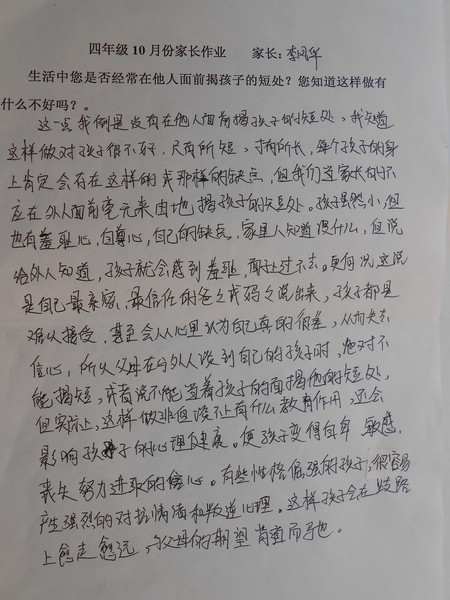 四年级10月份家长作业 家长：李风华
生活中您是否经常在他人面前揭孩子的短处？您知道这样做有
什么不好吗？。
这一点我倒是没有在他人面前揭孩子的短处，我知道
这样做对孩子很不好，尺有所短，寸有所长，每个孩子的身
上肯定会存在这样的或那样的缺点，但我们这家长的不
应在外人面前毫无来由地揭孩子的短处。孩子虽然小，但
也有羞耻心，自尊心，自己的缺点，家里人知道没什么，但说
给外人知道，孩子就会感到羞耻，面子上过不去。更何况，这说
是自己最亲密、最信任的爸爸或妈妈说出来，孩子都是
难以接受，甚至会从心里认为自己真的很差，从而失去
信心，所以父母在与外人谈到自己的孩子时，绝对不
能揭短，或者说不能当着孩子的面揭他的短处，
但实际上，这样做非但谈不上有什么教育作用，还会
影响孩子的心理健康。使孩子变得自卑、敏感，
丧失努力进取的信心。有些性格倔强的孩子，很容易
产生强烈的对抗情绪和叛逆心理。这样孩子会在歧路
上愈走愈远，与父母的期望背道而驰。